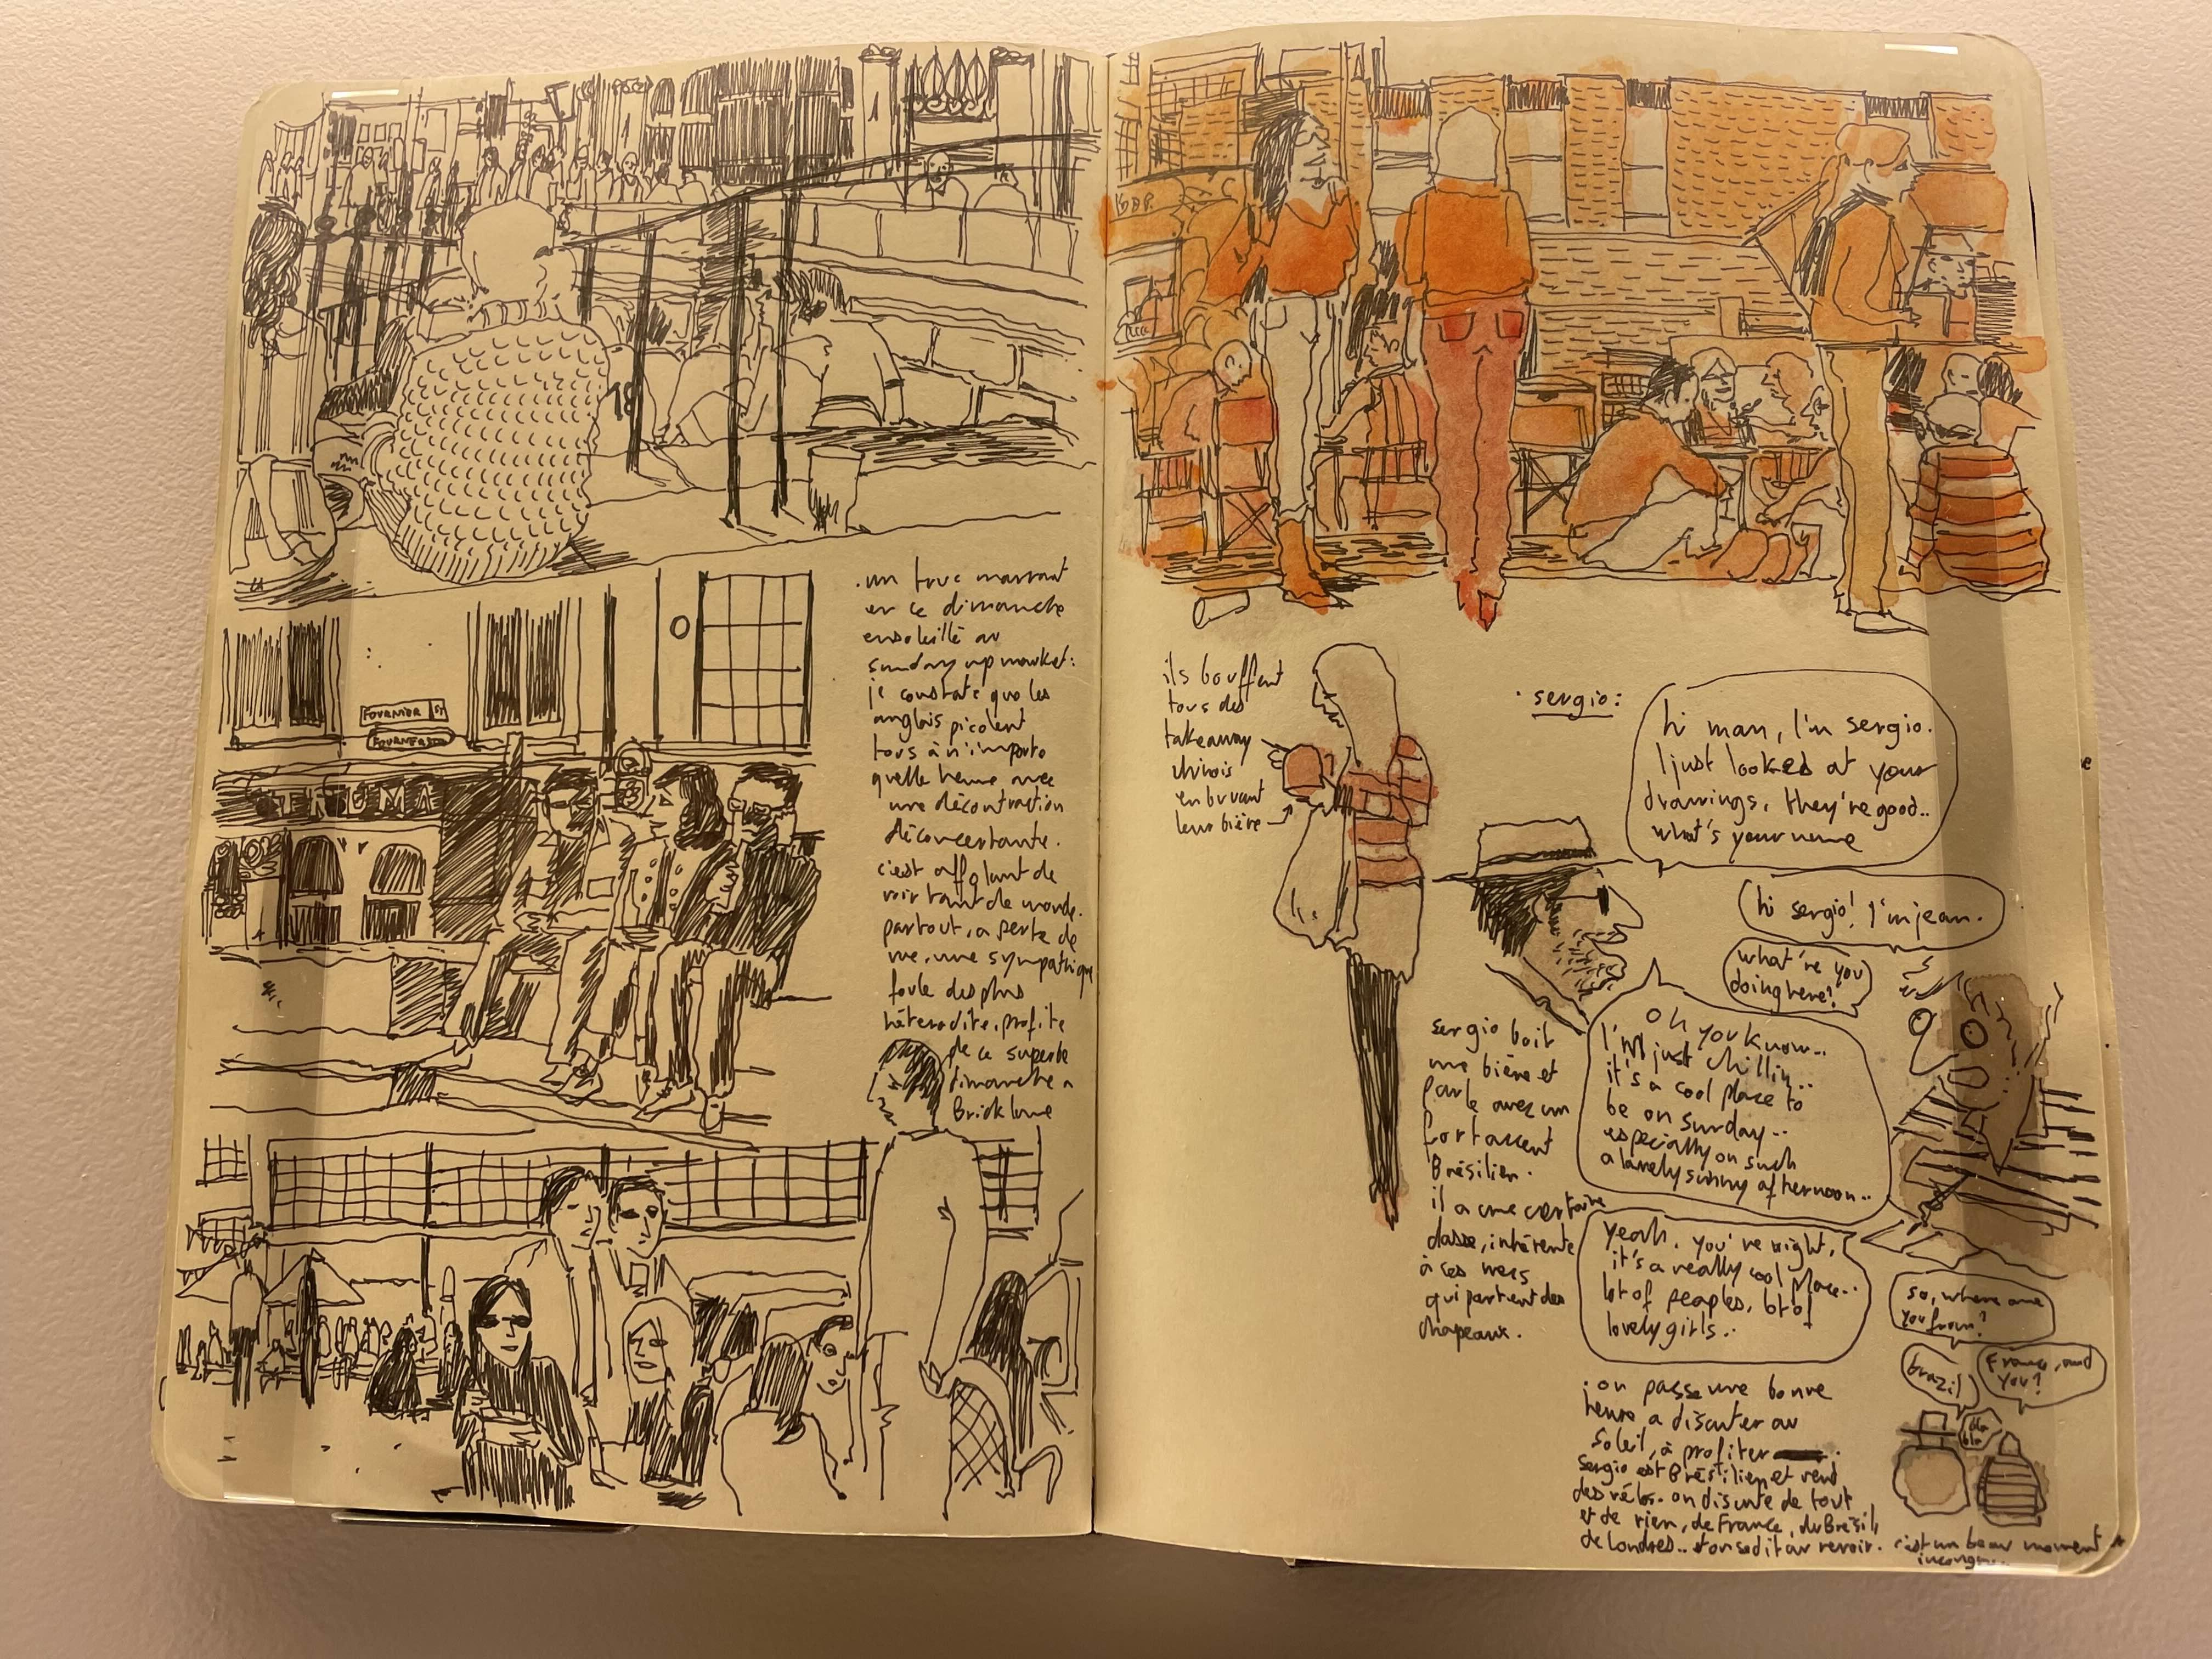 18
FOURNIER ST
FOURNIER ST
. un truc marrant
en ce dimanche
ensoleillé au
sunday up market:
je constate que les
anglais picolent
tous à n'importe
quelle heure avec
une décontraction
déconcertante.
c'est affolant de
voir tant de monde.
partout, a perte de
vue, une sympathique
foule des plus
hétéroclite, profite
de ce superbe
dimanche a
Brick lane
ils bouffent
tous des
takeaway
chinois
en buvant
leur bière
. sergio:
hi man, I'm sergio.
I just looked at your
drawings, they're good..
what's your name
hi sergio! I'm jean.
what're you
doing here?
oh you know..
I'm just chillin..
it's a cool place to
be on sunday..
especially on such
a lovely sunny afternoon..
sergio boit
une bière et
parle avec un
fort accent
Brésilien.
il a une certaine
classe, inhérente
à ces mecs
qui portent des
chapeaux.
yeah, you're right,
it's a really cool place..
lot of peoples, lot of
lovely girls..
so, where are
you from?
brazil
France, and
you?
bla
bla
. on passe une bonne
heure a discuter au
soleil, à profiter
sergio est Brésilien et vend
des vélos. on discute de tout
et de rien, de France, du Brésil,
de Londres.. et on se dit au revoir.
c'est un beau moment